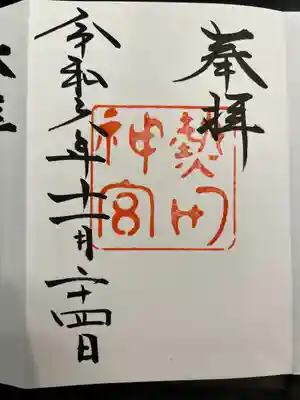 奉拝
熱田
神宮
令和 年十一月二十四日